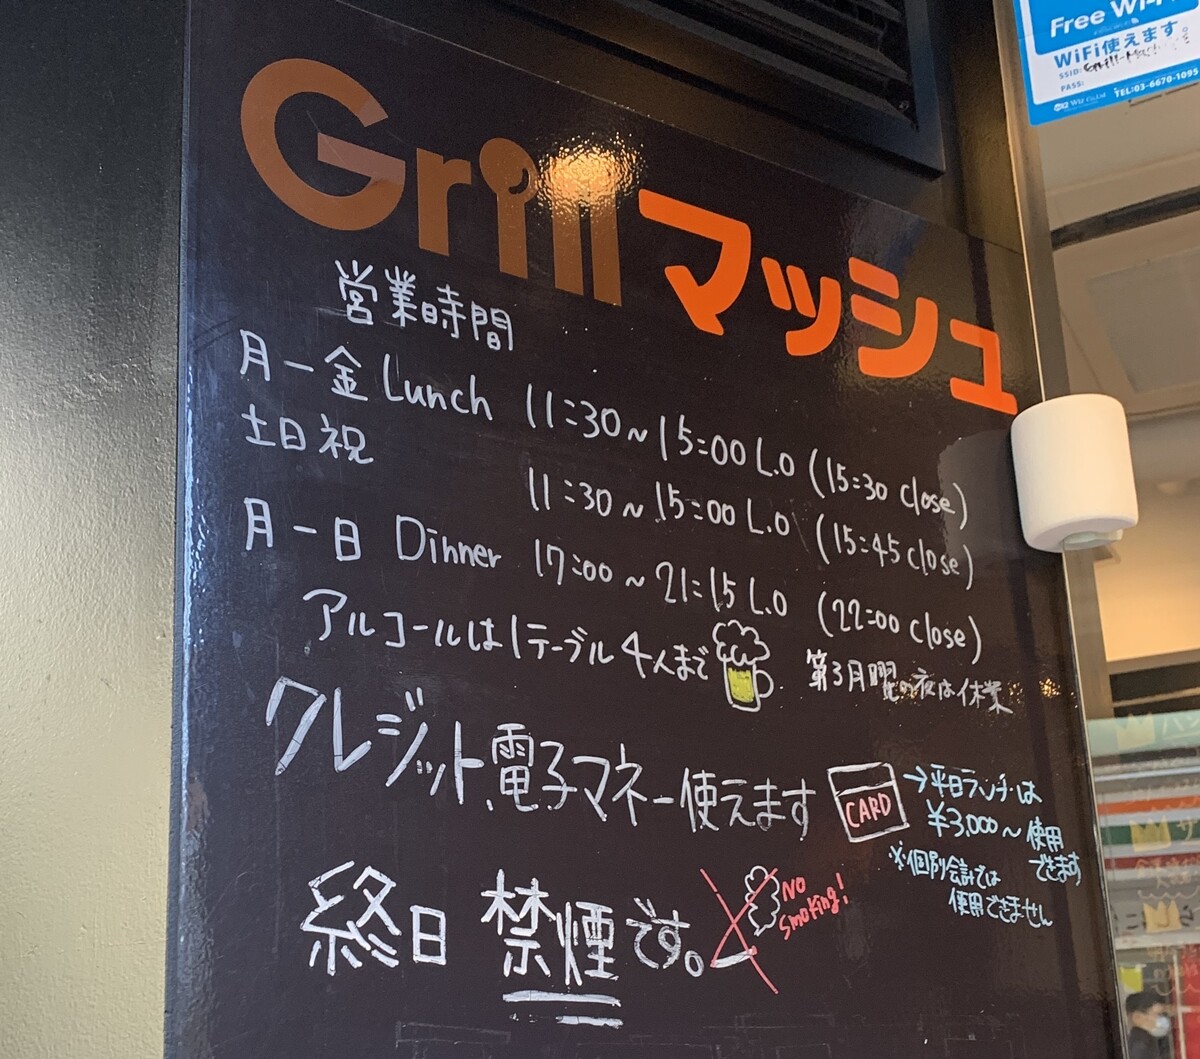 Free Wi-Fi
WiFi使えます。
SSID:
PASS:
TEL:03-6670-1095
Grill マッシュ
営業時間
月ー金 Lunch 11:30~15:00 L.O (15:30 close)
土日祝 11:30~15:00 L.O (15:45 close)
月ー日 Dinner 17:00~21:15 L.O (22:00 close)
アルコールは1テーブル4人まで
第3月曜の夜は休業
クレジット、電子マネー使えます
CARD
→平日ランチは
¥3,000~使用
できます
※個別会計では
使用できません
終日 禁煙です。
NO
smoking!